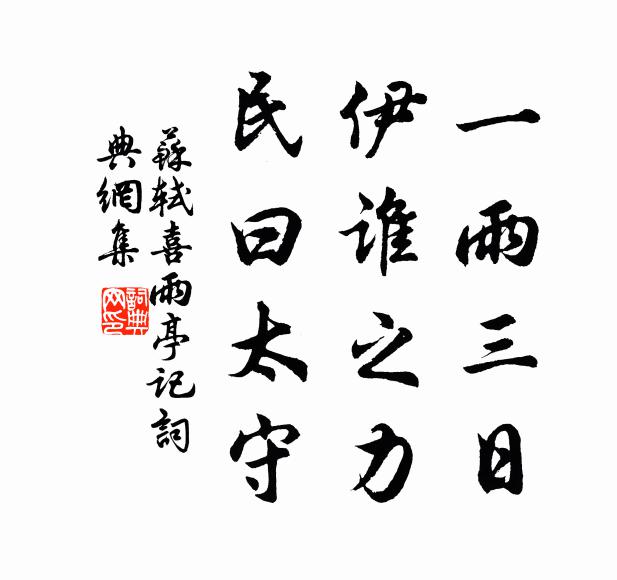 一雨三日
伊誰之力
民曰太守
蘇軾喜雨亭記詞
典網集
詞典
网印